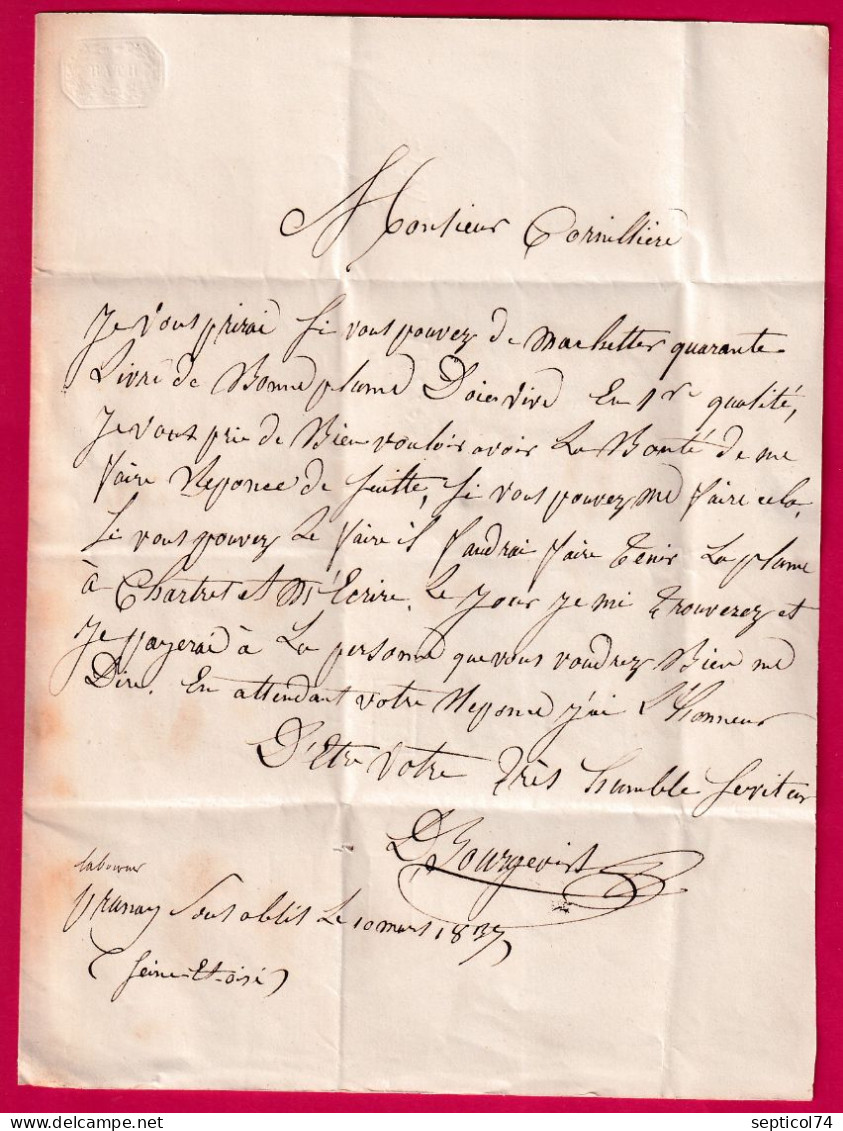 BATH
Monsieur Cornillière
Je vous prirai si vous pouvez de machetter quarante
Livre de Bonne plume Doie vive En 1re qualité,
Je vous prie de Bien vouloir avoir La Bonté de me
faire Reponce de suitte, si vous pouvez me faire cela,
Si vous pouvez Le faire il faudrai faire tenir La plume
à Chartres et M'Ecrire Le jour je mi trouverez et
Je payerai à La personne que vous voudrez Bien me
Dire. En attendant votre Reponce j'ai L'honneur
D'Etre votre très humble serviteur
D Bourgeois
laboureur
prunay sous ablis Le 10 mars 1837
(Seine-Et-oise)
septicol74